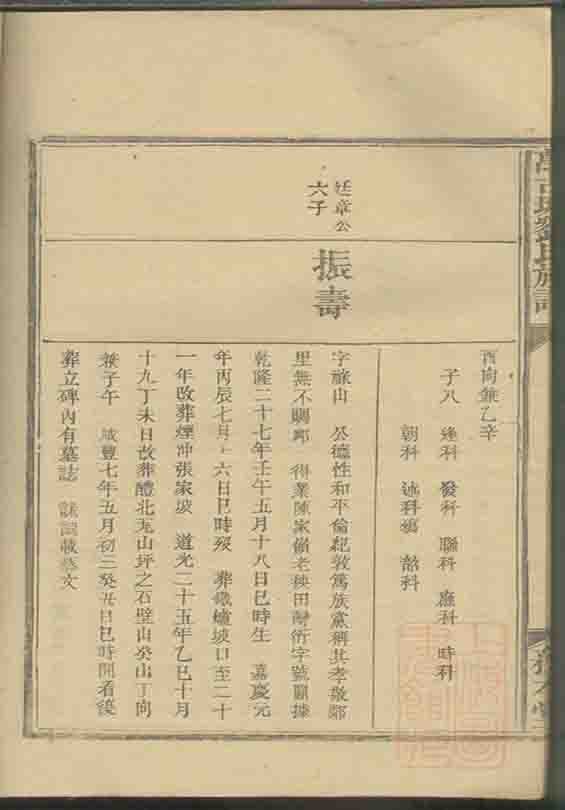 劉氏族譜
酉向兼乙辛
子八　逢科　發科　聯科　應科　時科
朝科　述科　韶科
廷章公
六子
振壽
字祿山　公德性和平倫紀敦篤族黨稱其孝敬鄰
里無不賙䘏　得業陳家僑老秧田灣衍字號圖據
乾隆二十七年壬午五月十八日巳時生　嘉慶元
年丙辰七月十六日巳時歿　葬鐵爐坡口至二十
一年改葬煙冲張家坡　道光二十五年乙巳十月
十九丁未日改葬醴北尢山坪之石壁山癸山丁向
兼子午　咸豐七年五月初三癸丑日巳時開看復
葬立碑內有墓誌　誌載藝文